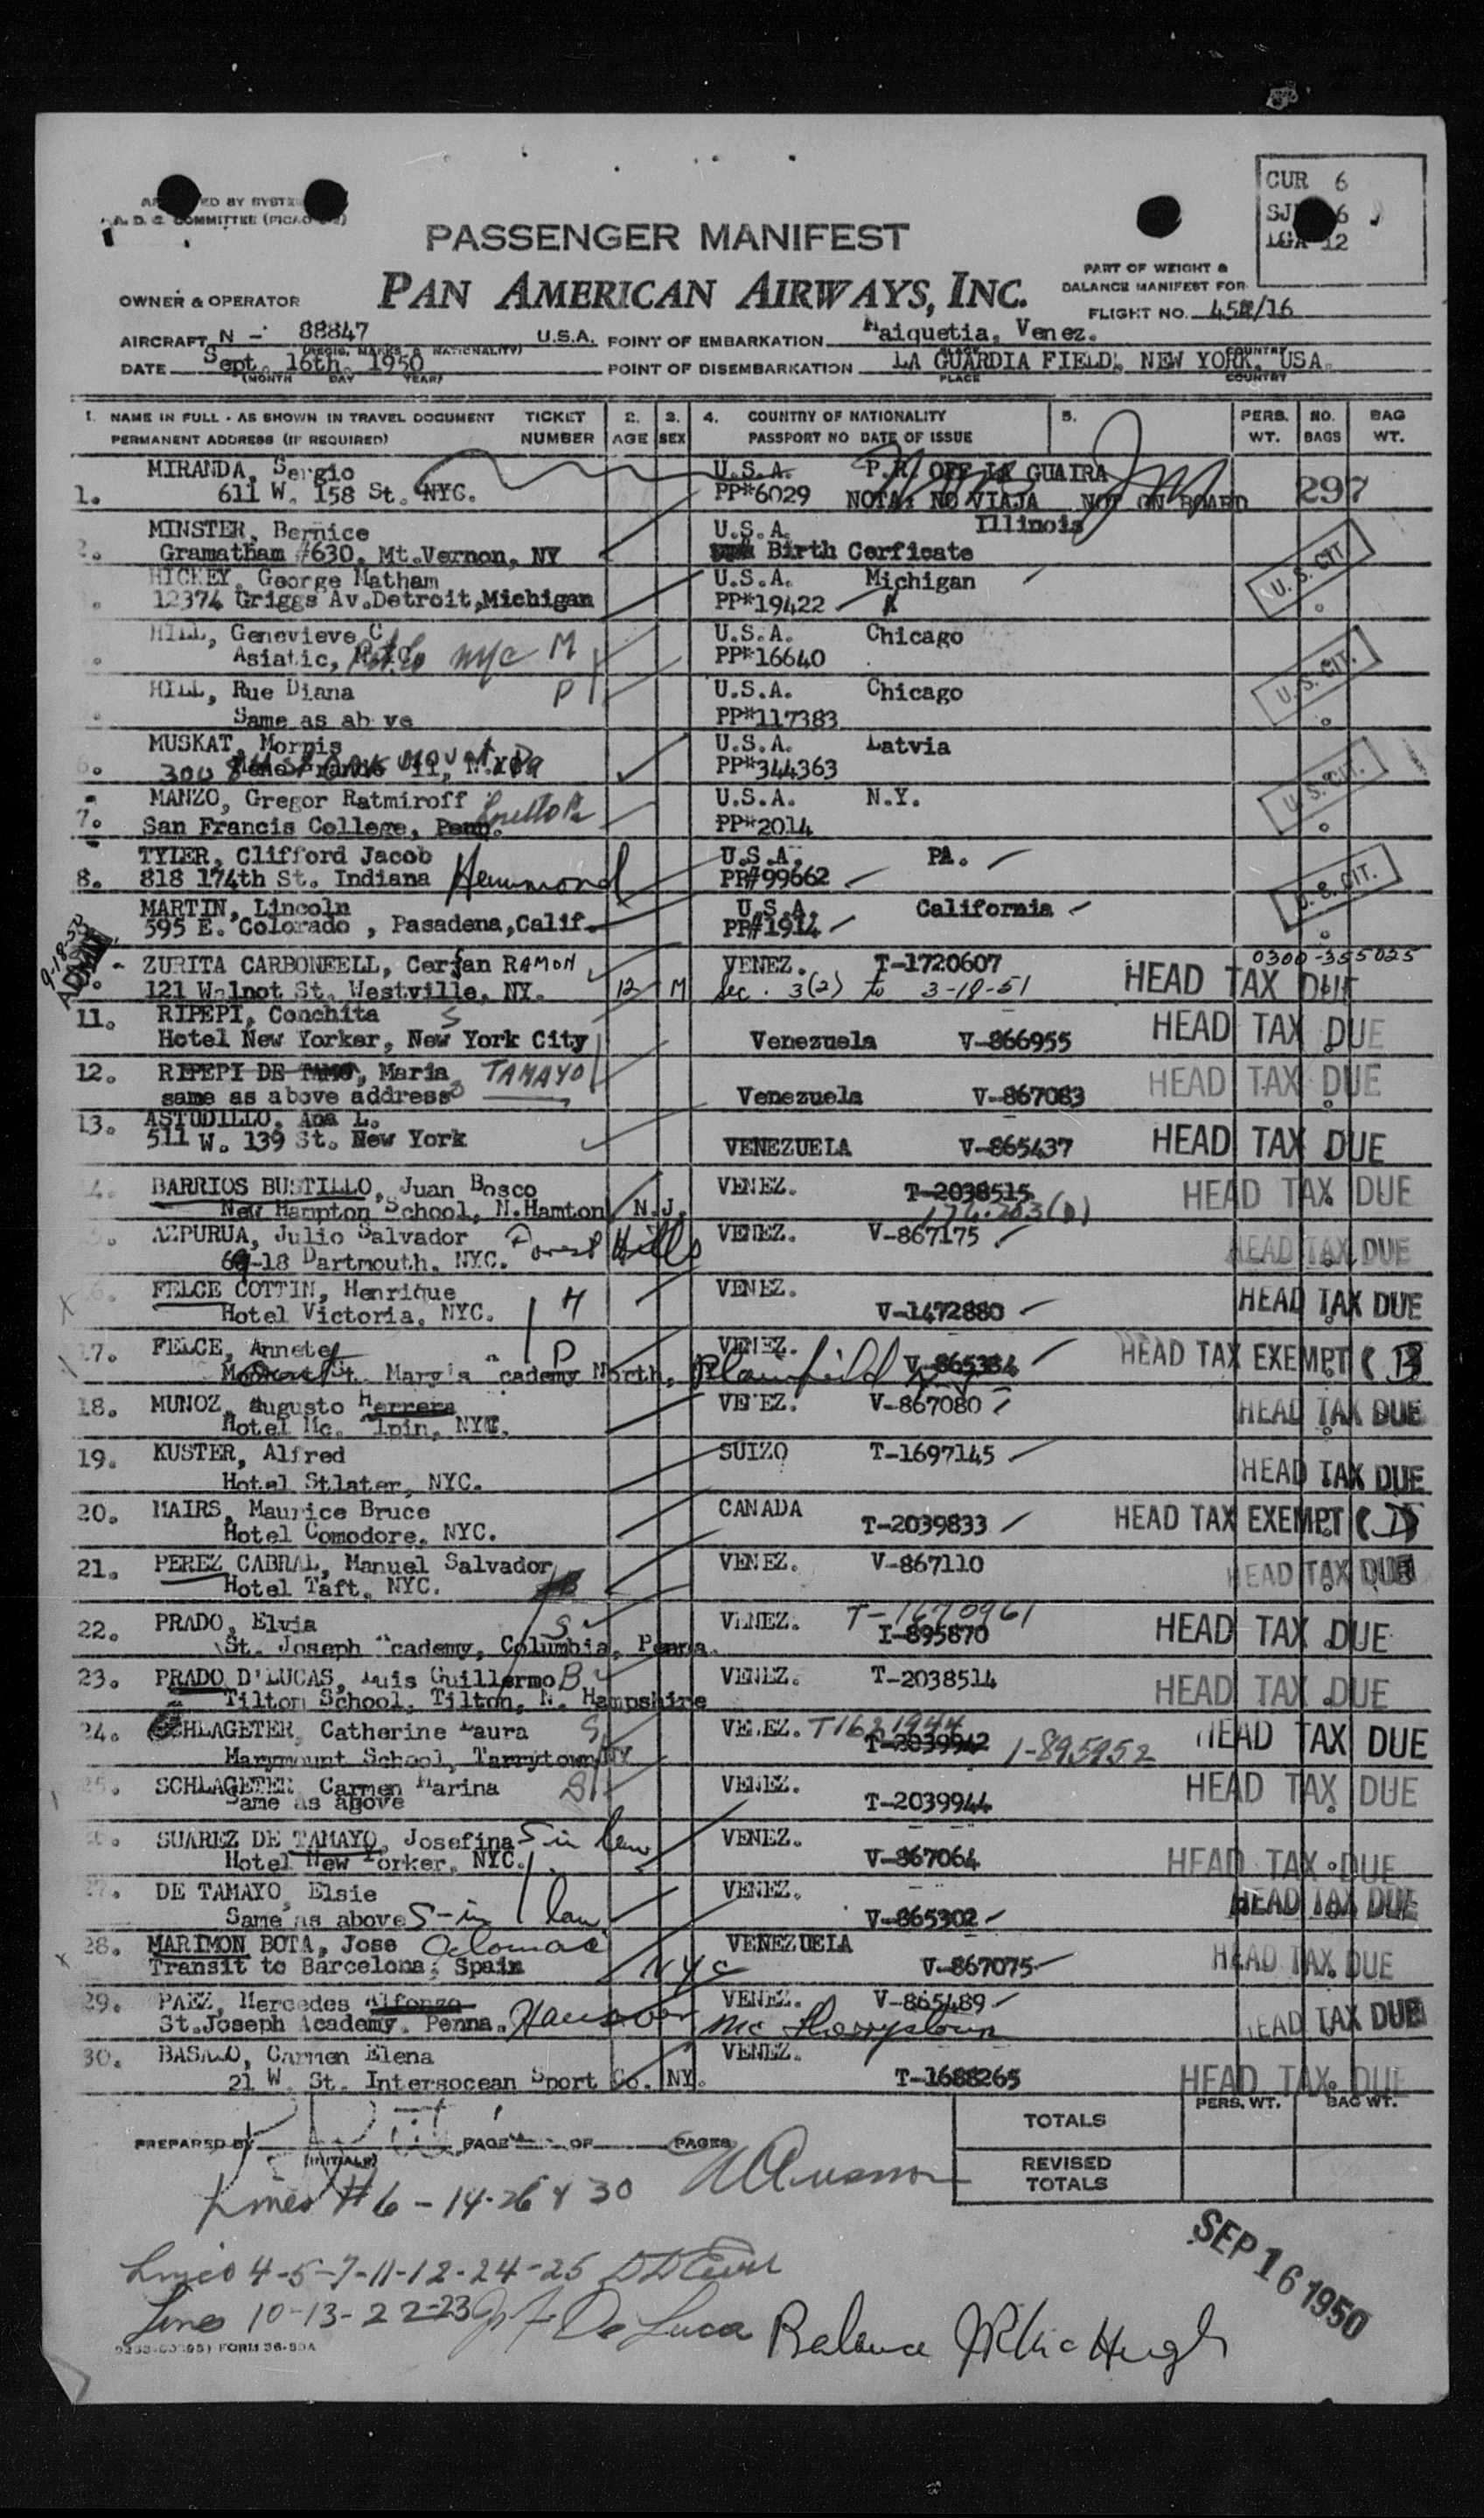 PASSENGER MANIFEST
PAN AMERICAN AIRWAYS, INC.
CUR 6
SJ 6
LGA 12
PART OF WEIGHT &
BALANCE MANIFEST FOR
FLIGHT NO. 45 /16
OWNER & OPERATOR
AIRCRAFT N - 88847 U.S.A. POINT OF EMBARKATION Maiquetia, Venez.
(REGIS. MARKS & NATIONALITY) PLACE COUNTRY
DATE Sept. 16th. 1950 POINT OF DISEMBARKATION LA GUARDIA FIELD, NEW YORK, USA.
(MONTH DAY YEAR) PLACE COUNTRY
1. NAME IN FULL - AS SHOWN IN TRAVEL DOCUMENT TICKET 2. 3. 4. COUNTRY OF NATIONALITY 5. PERS. NO. BAG
PERMANENT ADDRESS (IF REQUIRED) NUMBER AGE SEX PASSPORT NO DATE OF ISSUE WT. BAGS WT.
MIRANDA, Sergio U.S.A. P.R. OFF LA GUAIRA
1. 611 W. 158 St. NYC. PP#6029 NOTA: NO VIAJA NOT ON BOARD 297
MINSTER, Bernice U.S.A. Illinois
2. Gramatham #630, Mt.Vernon, NY Birth Cerficate U.S. CIT.
HICKEY, George Matham U.S.A. Michigan
12374 Griggs Av.Detroit,Michigan PP#19422
HILL, Genevieve C U.S.A. Chicago
Asiatic, NYC M PP#16640 U.S. CIT.
HILL, Rue Diana D U.S.A. Chicago
Same as ab ve PP#117383
MUSKAT, Morris U.S.A. Latvia
6. 300 PP#344363 U.S. CIT.
MANZO, Gregor Ratmiroff U.S.A. N.Y.
7. San Francis College, Penn. Loretto Pa PP#2014
TYLER, Clifford Jacob U.S.A. PA.
8. 818 174th St. Indiana Hammond PP#99662 U.S. CIT.
MARTIN, Lincoln U.S.A. California
595 E. Colorado , Pasadena,Calif. PP#1914
9-18-50 ADMIT
ZURITA CARBONFELL, Cerfan RAMON VENEZ. T-1720607 0300-355025
121 Walnot St. Westville, NY. 12 M Sec. 3(2) to 3-18-51 HEAD TAX DUE
11. RIPEPI, Conchita S
Hotel New Yorker, New York City Venezuela V-866955 HEAD TAX DUE
12. RIPEPI DE TAMO, Maria TAMAYO
same as above address Venezuela V-867083 HEAD TAX DUE
13. ASTUDILLO, Ana L.
511 W. 139 St. New York VENEZUELA V-865437 HEAD TAX DUE
14. BARRIOS BUSTILLO, Juan Bosco VENEZ. T-2038515 HEAD TAX DUE
New Hampton School, N.Hamton, N.J.
AZPURUA, Julio Salvador VENEZ. V-867175 HEAD TAX DUE
69-18 Dartmouth, NYC. Forest Hills
FELCE COTTIN, Henrique H VENEZ.
Hotel Victoria, NYC. V-1472880 HEAD TAX DUE
17. FELCE, Annete D VENEZ. V-865384 HEAD TAX EXEMPT (B)
St. Mary's cademy North, Plainfield
18. MUNOZ, Augusto Herrera VENEZ. V-867080 HEAD TAX DUE
Hotel Mc. lpin, NYC.
19. KUSTER, Alfred SUIZO T-1697145
Hotel Stlater, NYC. HEAD TAX DUE
20. MAIRS, Maurice Bruce CANADA T-2039833 HEAD TAX EXEMPT (D)
Hotel Comodore, NYC.
21. PEREZ CABRAL, Manuel Salvador VENEZ. V-867110 HEAD TAX DUE
Hotel Taft, NYC.
22. PRADO, Elvia S VENEZ. T-1670961 I-895870 HEAD TAX DUE
St. Joseph cademy, Columbia, Penna.
23. PRADO D'LUCAS, Luis Guillermo B VENEZ. T-2038514 HEAD TAX DUE
Tilton School, Tilton, N. Hampshire
24. SCHLAGETER, Catherine Laura S VENEZ. T1621944 T-2039942 1-895952 HEAD TAX DUE
Marymount School, Tarrytown NY
25. SCHLAGETER, Carmen Marina VENEZ. HEAD TAX DUE
Same as above T-2039944
SUAREZ DE TAMAYO, Josefina S in law VENEZ.
Hotel New Yorker, NYC. V-867064 HEAD TAX DUE
27. DE TAMAYO, Elsie VENEZ. HEAD TAX DUE
Same as above S-in law V-865302
28. MARIMON BOTA, Jose VENEZUELA
Transit to Barcelona, Spain NYC V-867075 HEAD TAX DUE
29. PAEZ, Mercedes Alfonzo VENEZ. V-865489
St.Joseph Academy. Penna. Hanover Mc Sherrystown HEAD TAX DUE
30. BASALO, Carmen Elena VENEZ.
21 W. St. Intersocean Sport Co. NY. T-1688265 HEAD TAX DUE
PERS. WT. BAG WT.
TOTALS
PREPARED BY PAGE OF PAGES
(INITIALS)
REVISED
TOTALS
Lines #6-14-26 & 30
SEP 16 1950
Lines 4-5-7-11-12-24-25
Lines 10-13-22-23 De Luca Balance JR McHugh
FORM 36-50A